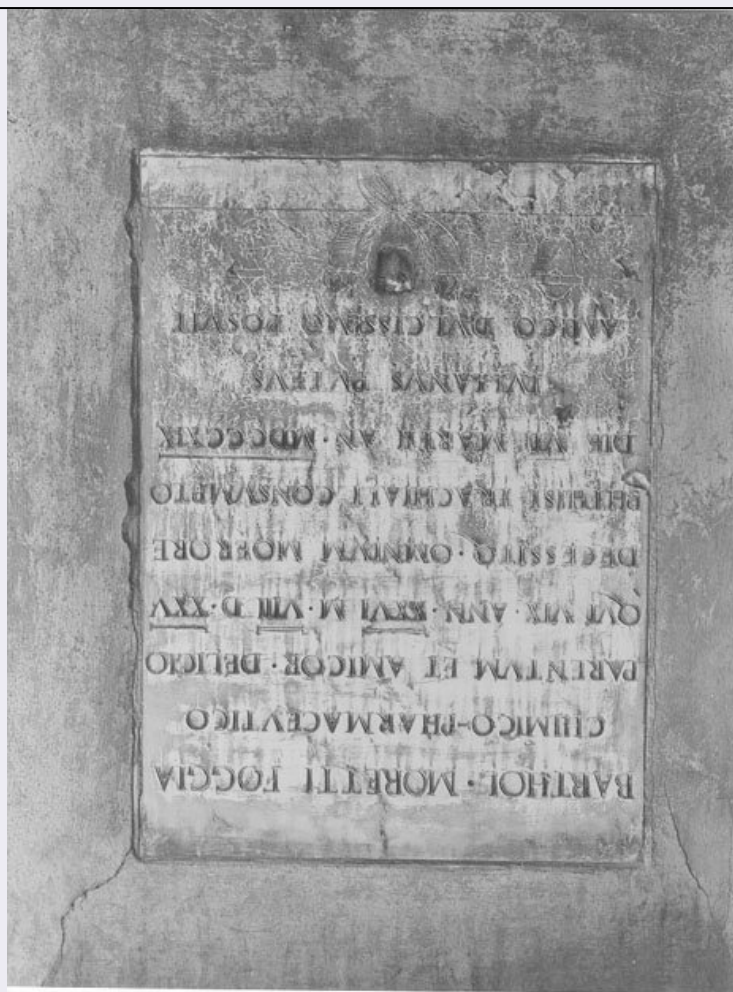 BARTHOL· MORETTI FOGGIA
CHIMICO-PHARMACEVTICO
PARENTVM ET AMICOR· DELICIO
QVI VIX· ANN· XXVI M· VIII D· XXV
DECESSITQ· OMNIVM MOERORE
PHTHISI TRACHIALI CONSVMPTO
DIE VII MARTII AN· MDCCCXIX
IVLIANVS PVTEVS
AMICO DVLCISSIMO POSVIT